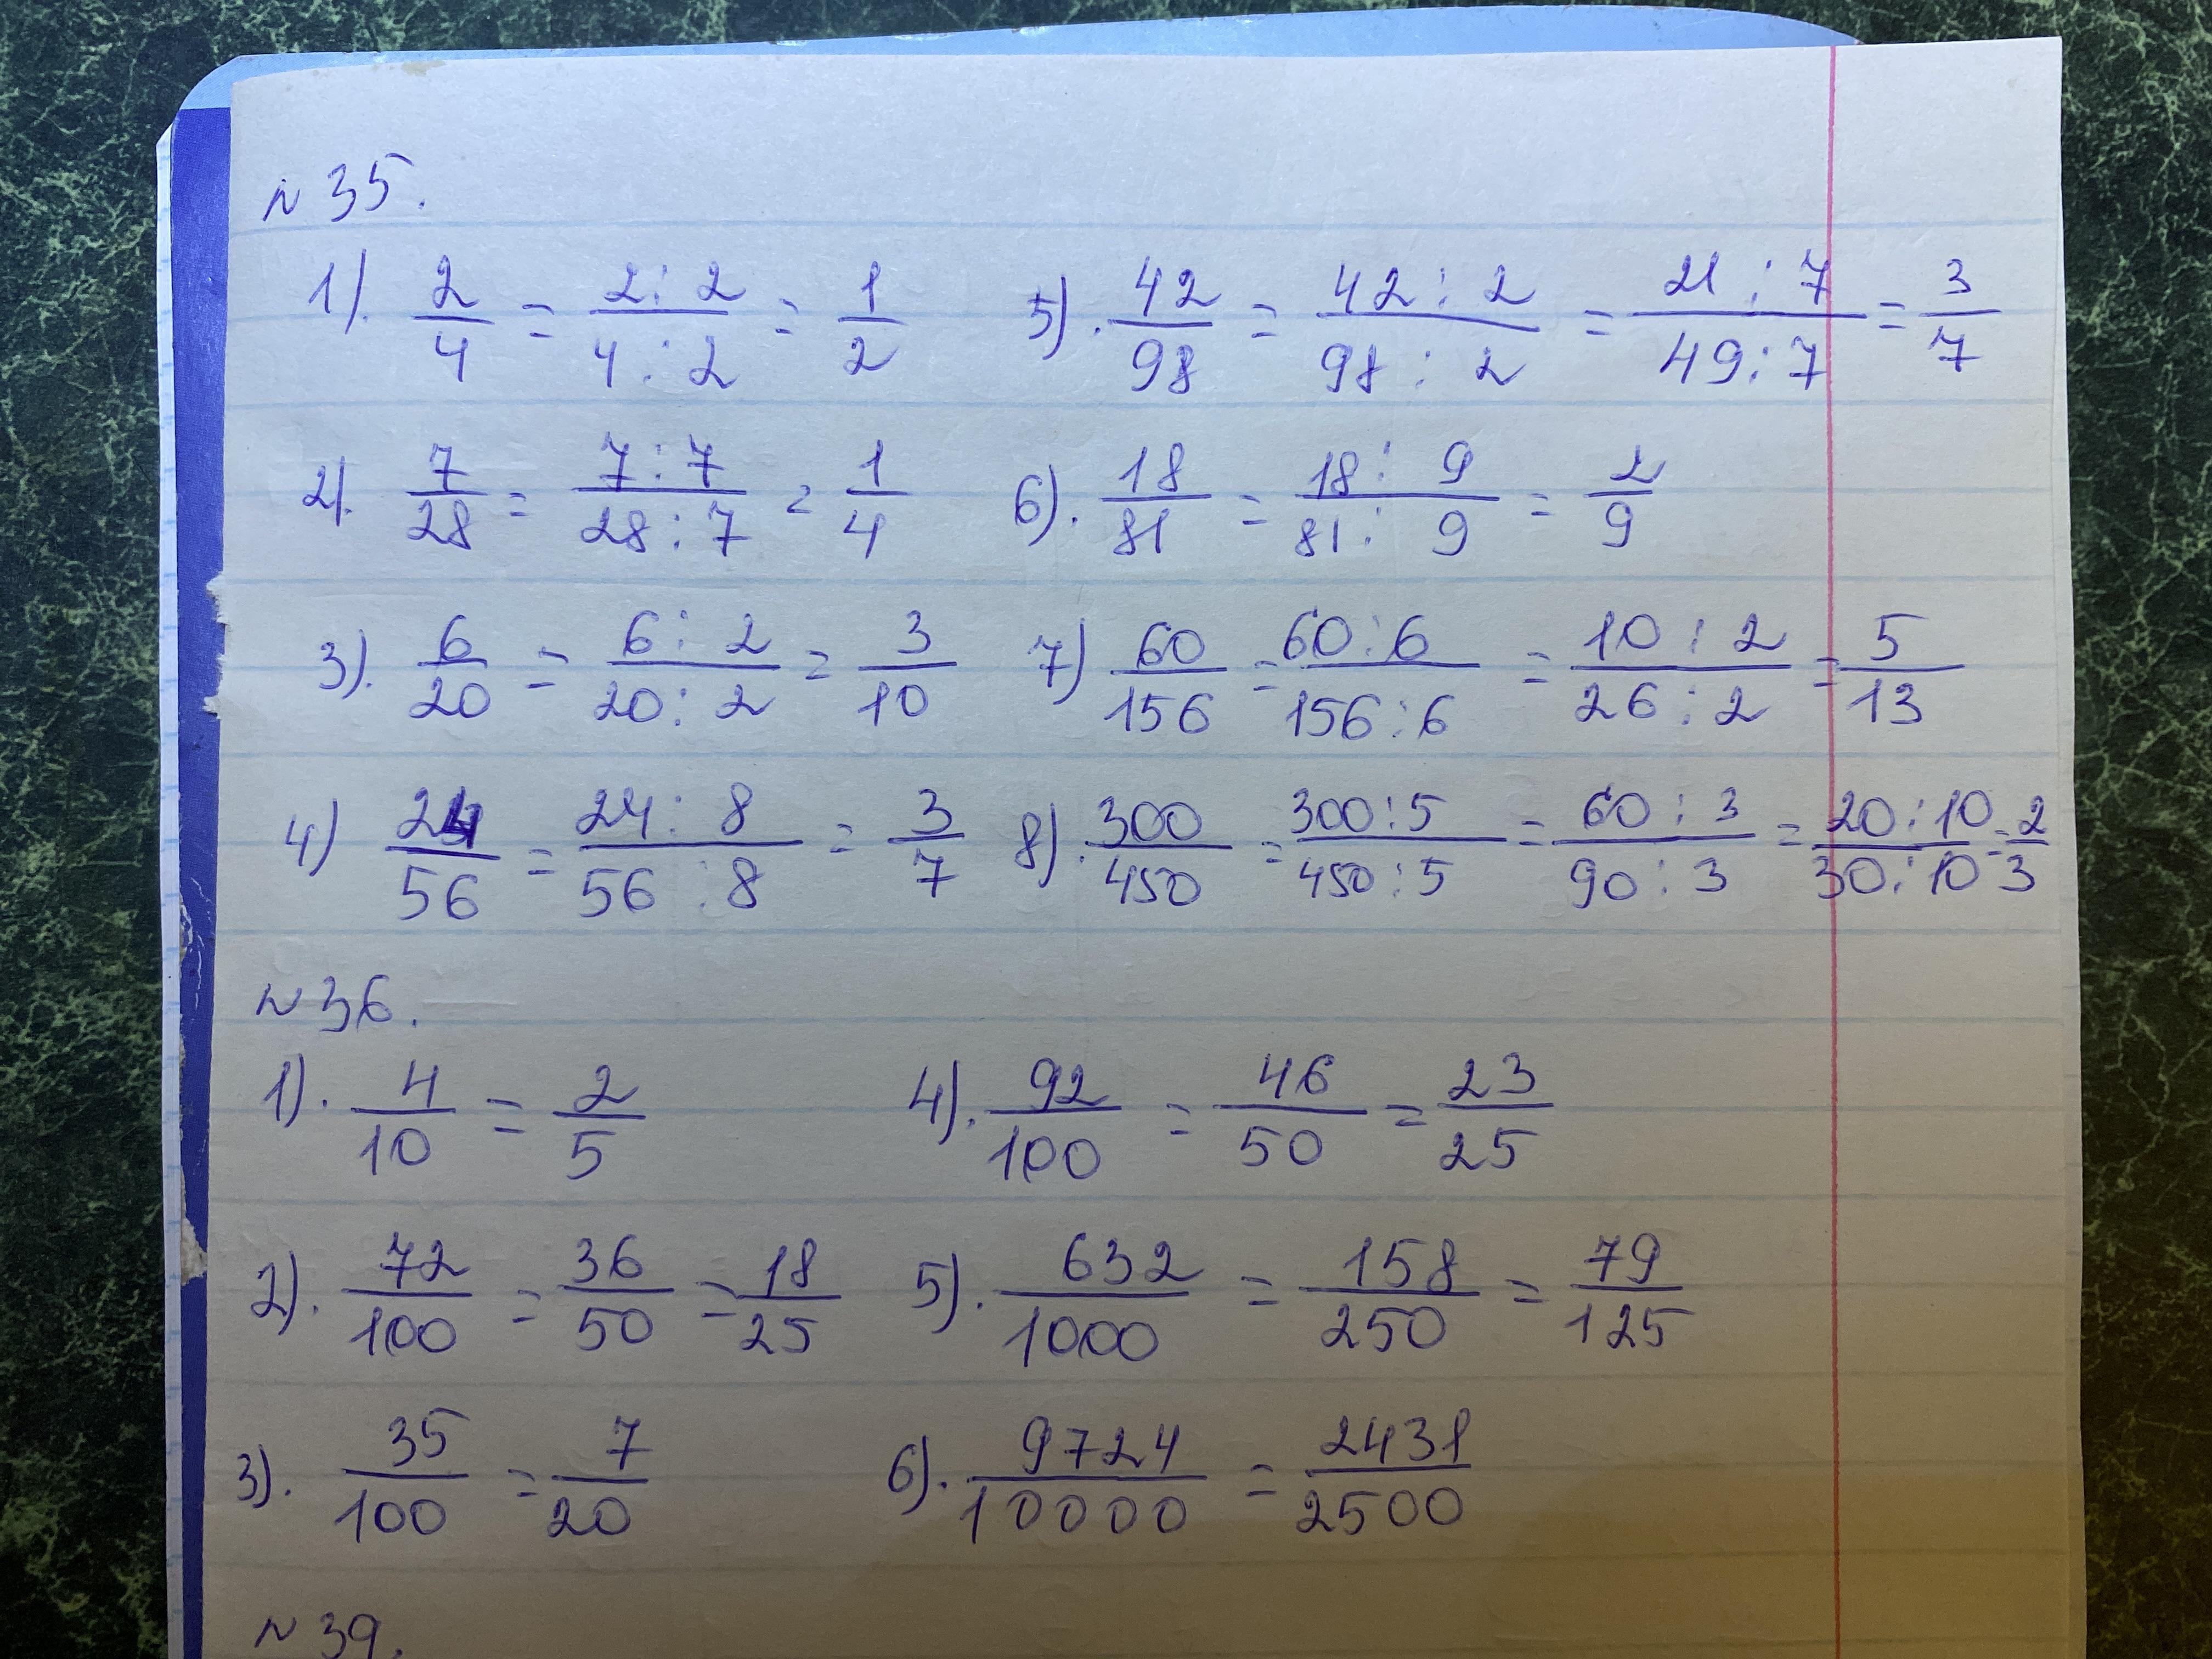 № 35.
1). 2/4 = 2:2/4:2 = 1/2 5). 42/98 = 42:2/98:2 = 21:7/49:7 = 3/7
2). 7/28 = 7:7/28:7 = 1/4 6). 18/81 = 18:9/81:9 = 2/9
3). 6/20 = 6:2/20:2 = 3/10 7) 60/156 = 60:6/156:6 = 10:2/26:2 = 5/13
4) 24/56 = 24:8/56:8 = 3/7 8). 300/450 = 300:5/450:5 = 60:3/90:3 = 20:10/30:10 = 2/3
№ 36.
1). 4/10 = 2/5 4). 92/100 = 46/50 = 23/25
2). 72/100 = 36/50 = 18/25 5). 632/1000 = 158/250 = 79/125
3). 35/100 = 7/20 6). 9724/10000 = 2431/2500
№ 39.